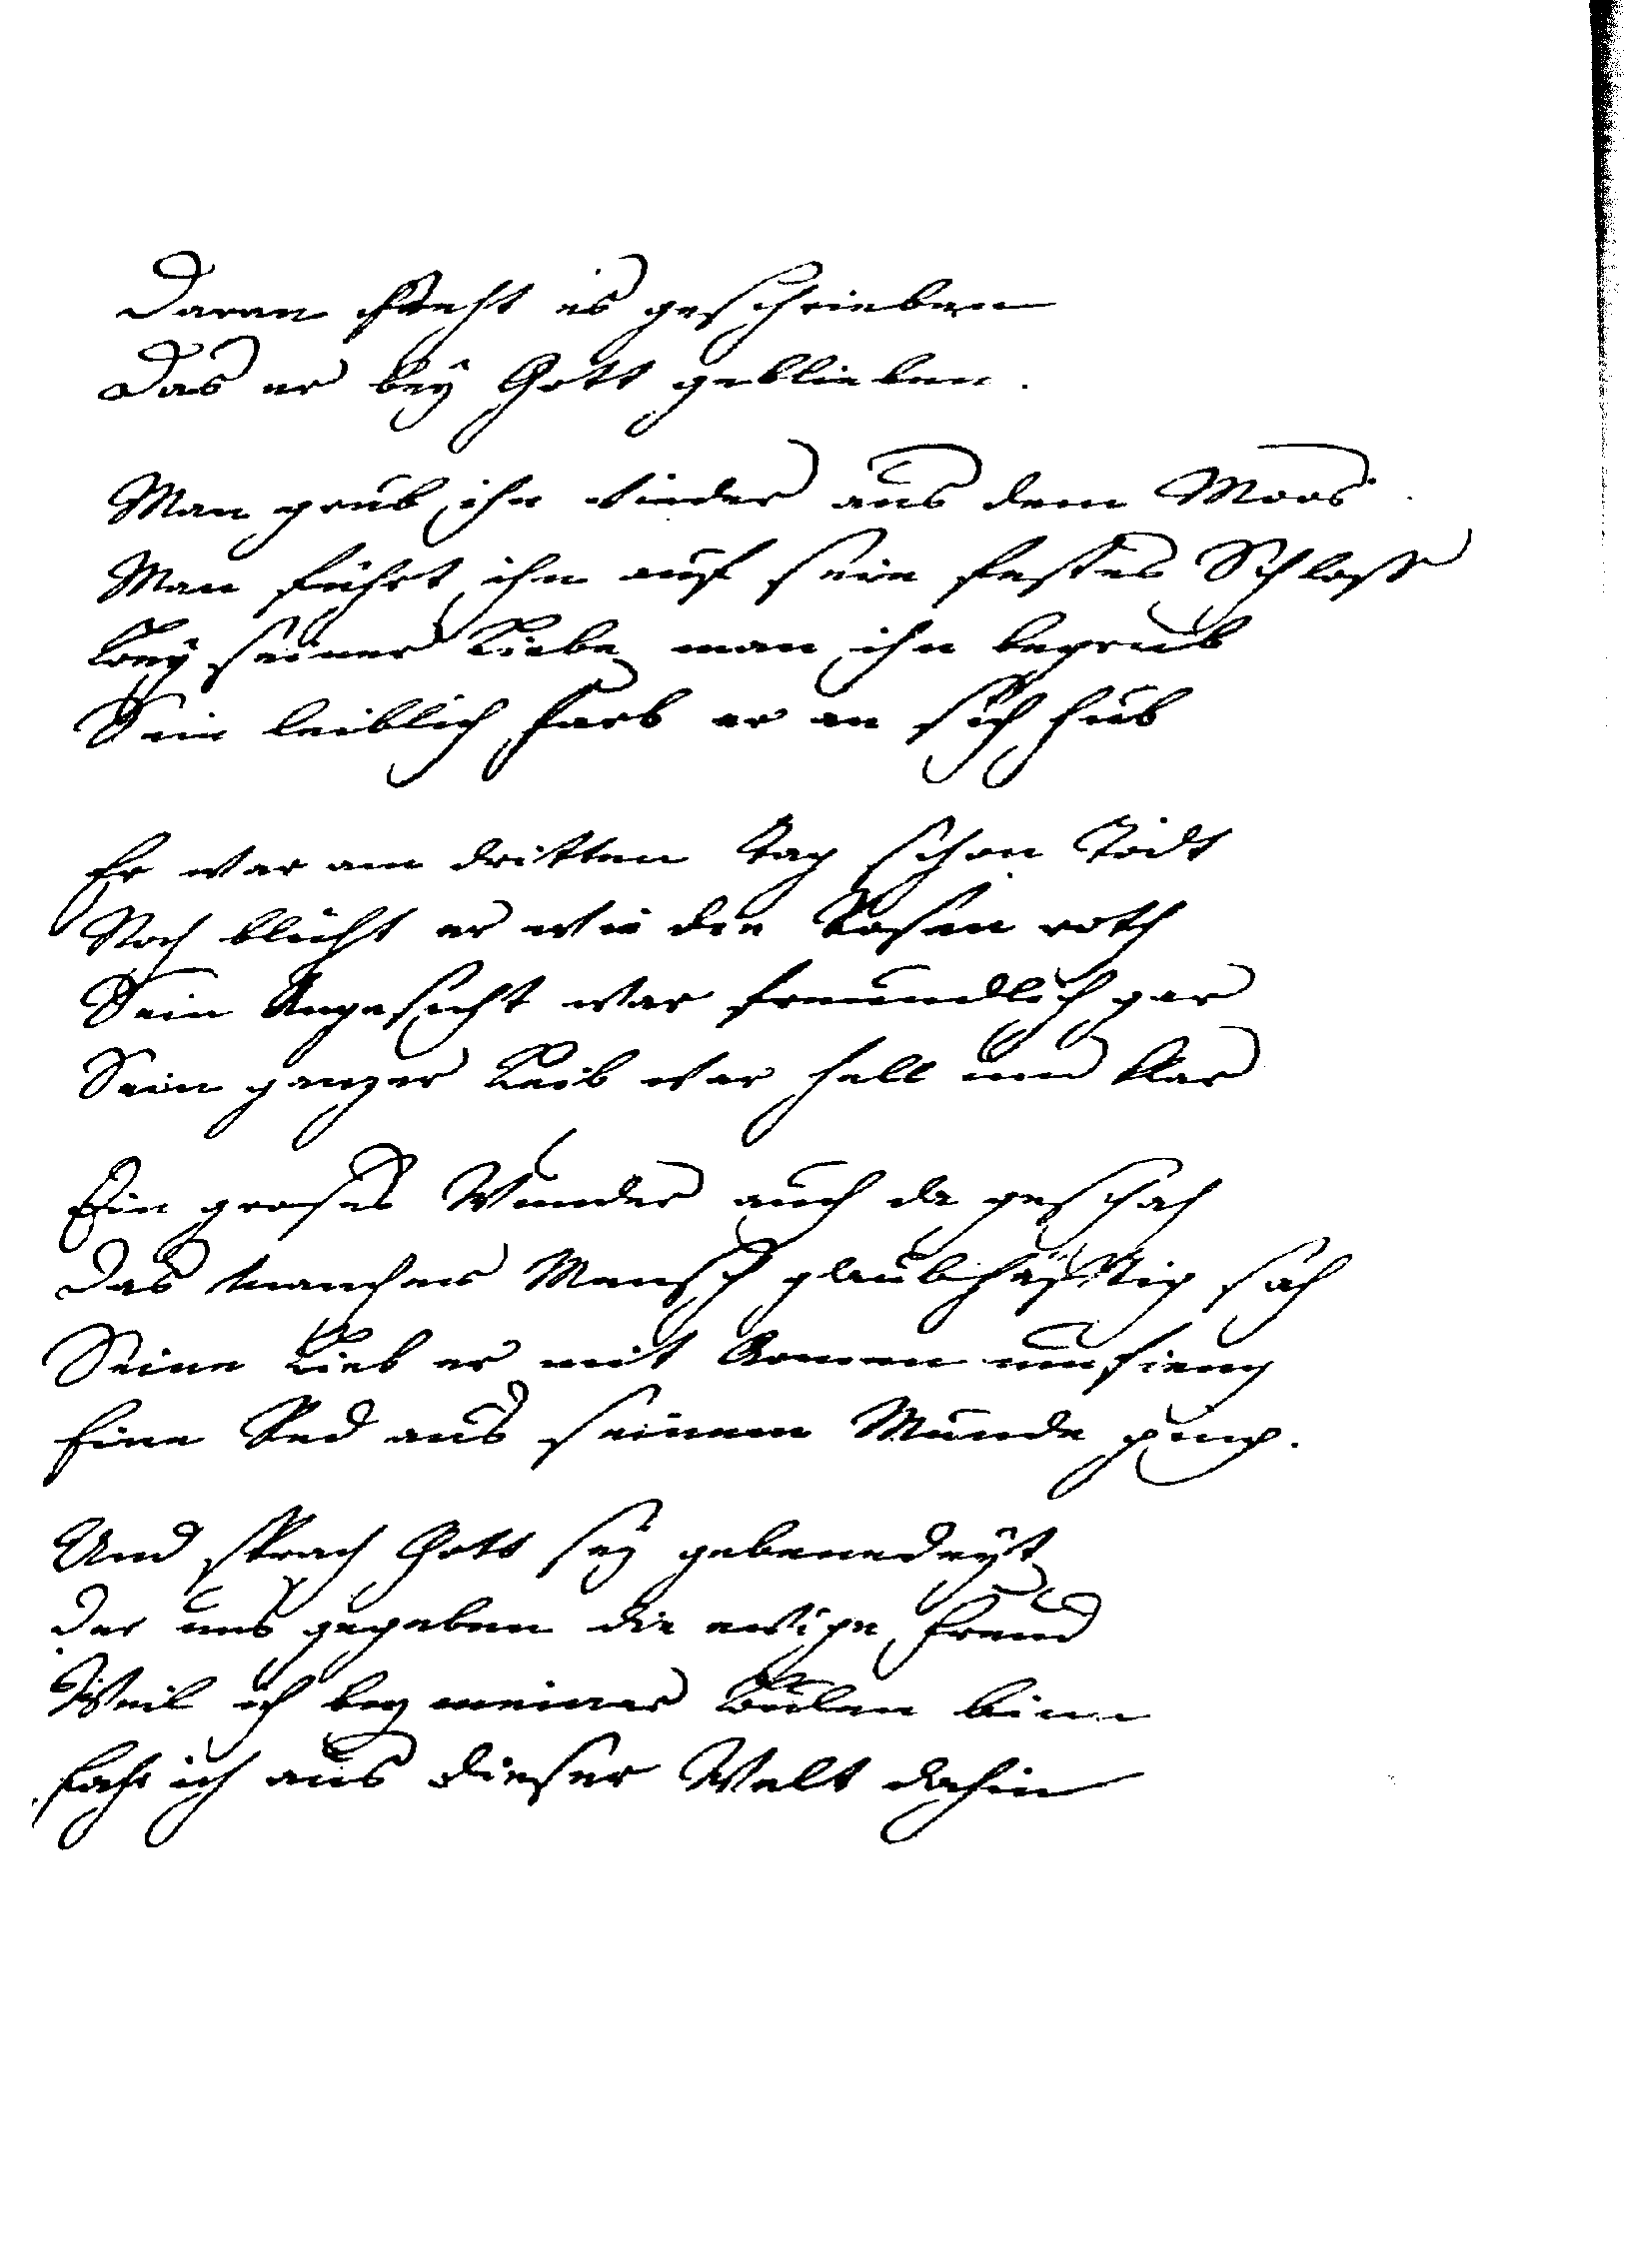 Daran steht es geschrieben
Das er beÿ Gott geblieben.
Man grub ihn wieder aus dem Moos
Man führt ihn auf sein festes Schloss
Beÿ seiner Liebe man ihn begrub
Sein leiblich Farb er an sich hub
Er war am dritten Tag schon Todt
Noch blüht er wie die Rosen roth
Sein Angesicht war freundlich gar
Sein ganzer Leib war hell und klar
Ein groses Wunder auch da geschah
Das mancher Mensch glaubhäfftig sah
Seine Lieb er mit Armen umfieng
Eine Red aus seinem Munde ging.
Und sprach Gott seÿ gebenedeÿt
der uns gegeben die ewige Freud
Weil ich bey meiner Bulen binn
Fahr ich aus dieser Welt dahin